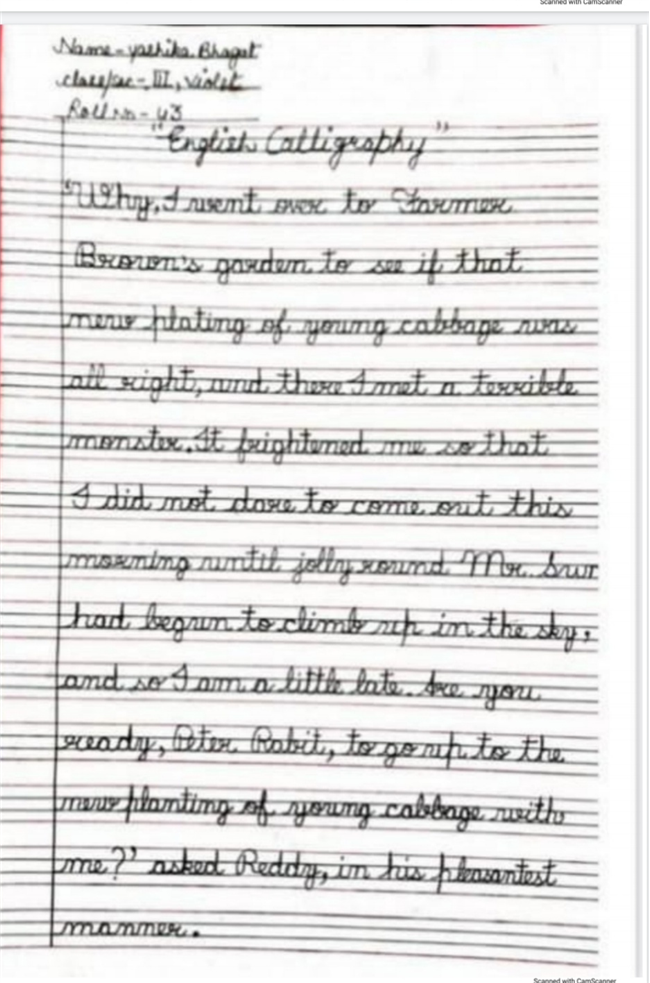 Scanned with CamScanner
Name - yashika Bhagat
class/sec - III, violet
Roll no - 43
"English Calligraphy"
"Why, I went over to Farmer
Brown's garden to see if that
new plating of young cabbage was
all right, and there I met a terrible
monster. It frightened me so that
I did not dare to come out this
morning until jolly round Mr. Sun
had begun to climb up in the sky,
and so I am a little late. Are you
ready, Peter Rabit, to go up to the
new planting of young cabbage with
me?" asked Reddy, in his pleasantest
manner.
Scanned with CamScanner